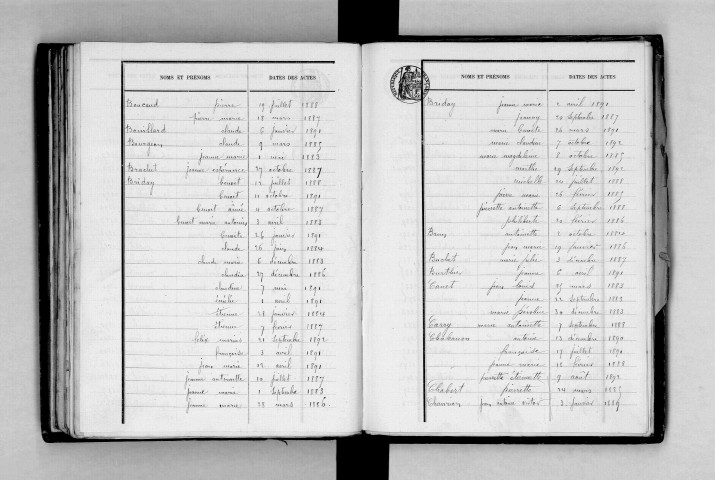 NOMS ET PRÉNOMS DATES DES ACTES
Boucaud pierre 19 juillet 1888
pierre marie 18 mars 1887
Bouillard claude 6 janvier 1891
Bourgeon claude 9 mars 1885
jeanne marie 1 mai 1883
Brachet jeanne 27 octobre 1887
Briday Benoit 12 juillet 1888
Benoit 11 octobre 1891
Benoit aimé 4 octobre 1887
Benoit marie antoine 3 avril 1883
Benoite 26 janvier 1891
claude 26 juin 1884
claude marie 6 décembre 1883
claudia 27 décembre 1886
claudine 7 mai 1891
émilie 1 avril 1891
Etienne 28 janvier 1884
étienne 7 février 1887
félix marius 21 septembre 1892
françoise 3 avril 1891
jean marie 12 avril 1891
jeanne antoinette 10 juillet 1887
jeanne marie 1 septembre 1883
jeanne marie 28 mars 1886
NOMS ET PRÉNOMS DATES DES ACTES
Briday jeanne marie 2 avril 1891
jeanny 20 septembre 1887
marie Benoite 26 mars 1891
marie claudine 7 octobre 1892
marie magdeleine 8 octobre 1885
marthe 29 septembre 1892
michelle 24 juillet 1888
pierre marie 26 février 1887
pierrette antoinette 6 septembre 1888
philiberte 20 février 1886
Brun antoinette 2 octobre 1884
jean marie 19 janvier 1886
Buchet marie 3 décembre 1887
BurtHier jeanne 6 avril 1891
Canet jean louis 25 mars 1883
jeanne 22 septembre 1883
marie 30 décembre 1883
Carry marie antoinette 9 septembre 1888
Chabanon antoine 13 décembre 1890
françoise 19 juillet 1891
jeanne marie 18 février 1888
pierrette étiennette 9 août 1892
Chabert pierrette 24 mars 1885
jean antoine victor 3 janvier 1889